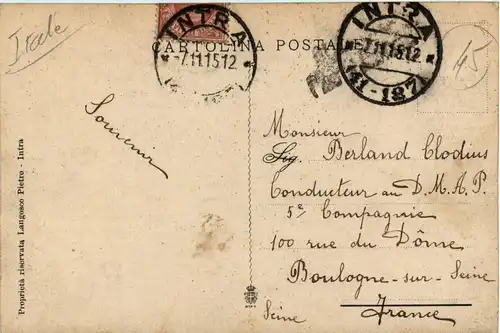 Itale
INTRA
-7.11.15 12
INTRA
-7.11.15 12
(41-127)
45
CARTOLINA POSTALE
Souvenir
Monsieur
Sig. Berland Clodius
Conducteur au D.M.A.P.
5e Compagnie
100 rue du Dôme
Boulogne-sur-Seine
Seine
France
Proprietà riservata Langosco Pietro - Intra